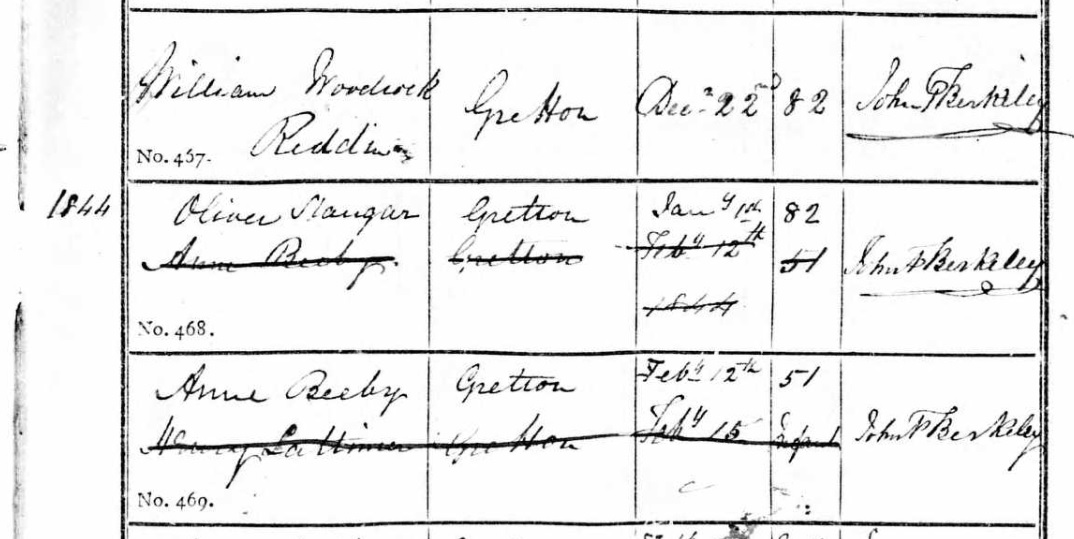 William Woodcock Gretton Decr 22nd 82 John F Berkeley
Reddin
No. 467.
1844 Oliver Stangar Gretton Jany 1st 82
Anne Beeby Gretton Feby 12th 51 John F Berkeley
1844
No. 468.
Anne Beeby Gretton Feby 12th 51
Henry Lattimer Gretton Feby 15 Infant John F Berkeley
No. 469.